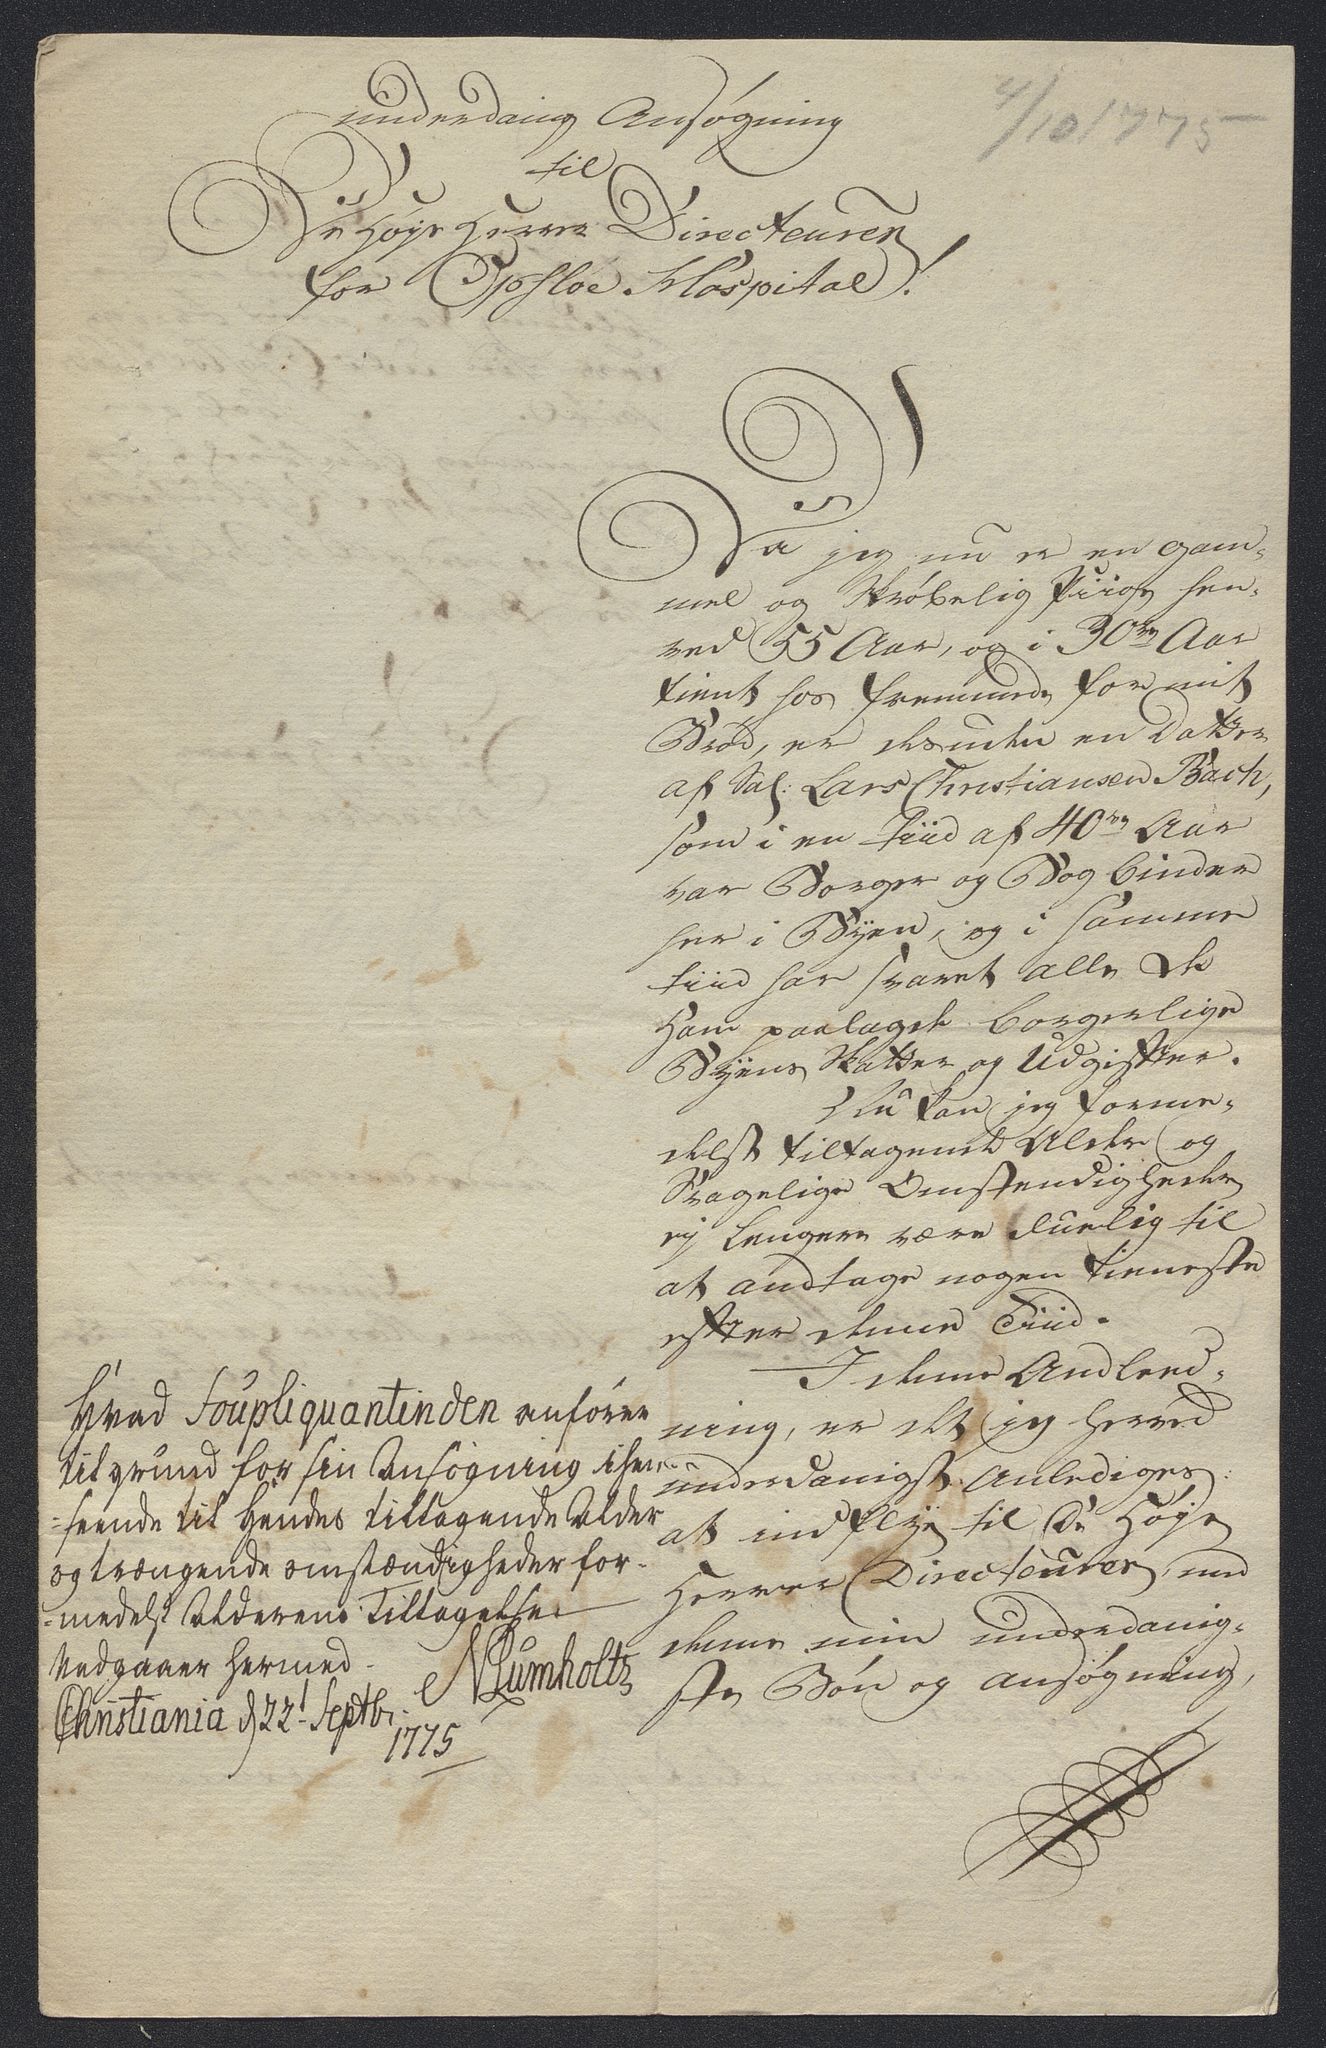 4/10 1775
underdanig Ansøgning
til
De Høye Herrer Directeurer
for Opsloe Hospital!
Da jeg nu er en gam-
mel og Skrøbelig Piige hen-
ved 55 Aar, og i 30ve Aar
tient hos fremmede for mit
Brød, er desuden en Datter
af Sal: Lars Christiansen Bach,
som i en Tiid af 40ve Aar
var Borger og Bogbinder
her i Byen, og i samme
tiid har svaret alle de
ham paalagde borgerlige
Byens Skatter og Udgifter.
Nu kan jeg forme-
delst tiltagende Alder og
Svagelige Omstendigheder
ej lengere være duelig til
at andtage nogen tieneste
efter denne Tiid.
I denne Andleed-
ning, er det jeg herved
underdanigst Anlediges:
at indflÿe til De Høye
Herrer Directeurer, med
denne min underdanig-
ste Bøn og ansøgning,
Hvad Soupliquantinden anfører
til grund for sin Ansøgning i hen-
-seende til hendes tiltagende Alder
og trængende omstændigheder for-
-medelst Alderens Tiltagelse
Vedgaaer hermed.
NLumholtz
Christiania d 22t Septbr.
1775